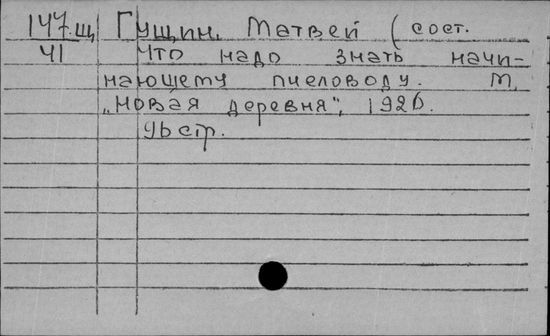 147.щ Гущин. Матвей (сост.
41 Что надо знать начи-
нающему пчеловоду. М,
„Новая деревня“, 1926.
96 стр.